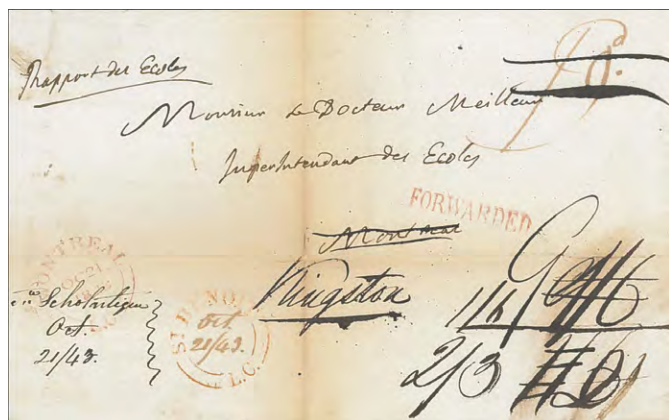 Rapport des Ecoles
Monsieur Le Docteur Meilleur
Superintendant des Ecoles
FORWARDED
Montreal
Kingston
MONTREAL
Scholastique
Oct.
21/43.
Oct.
21/43.
L.C.
1/6
2/3